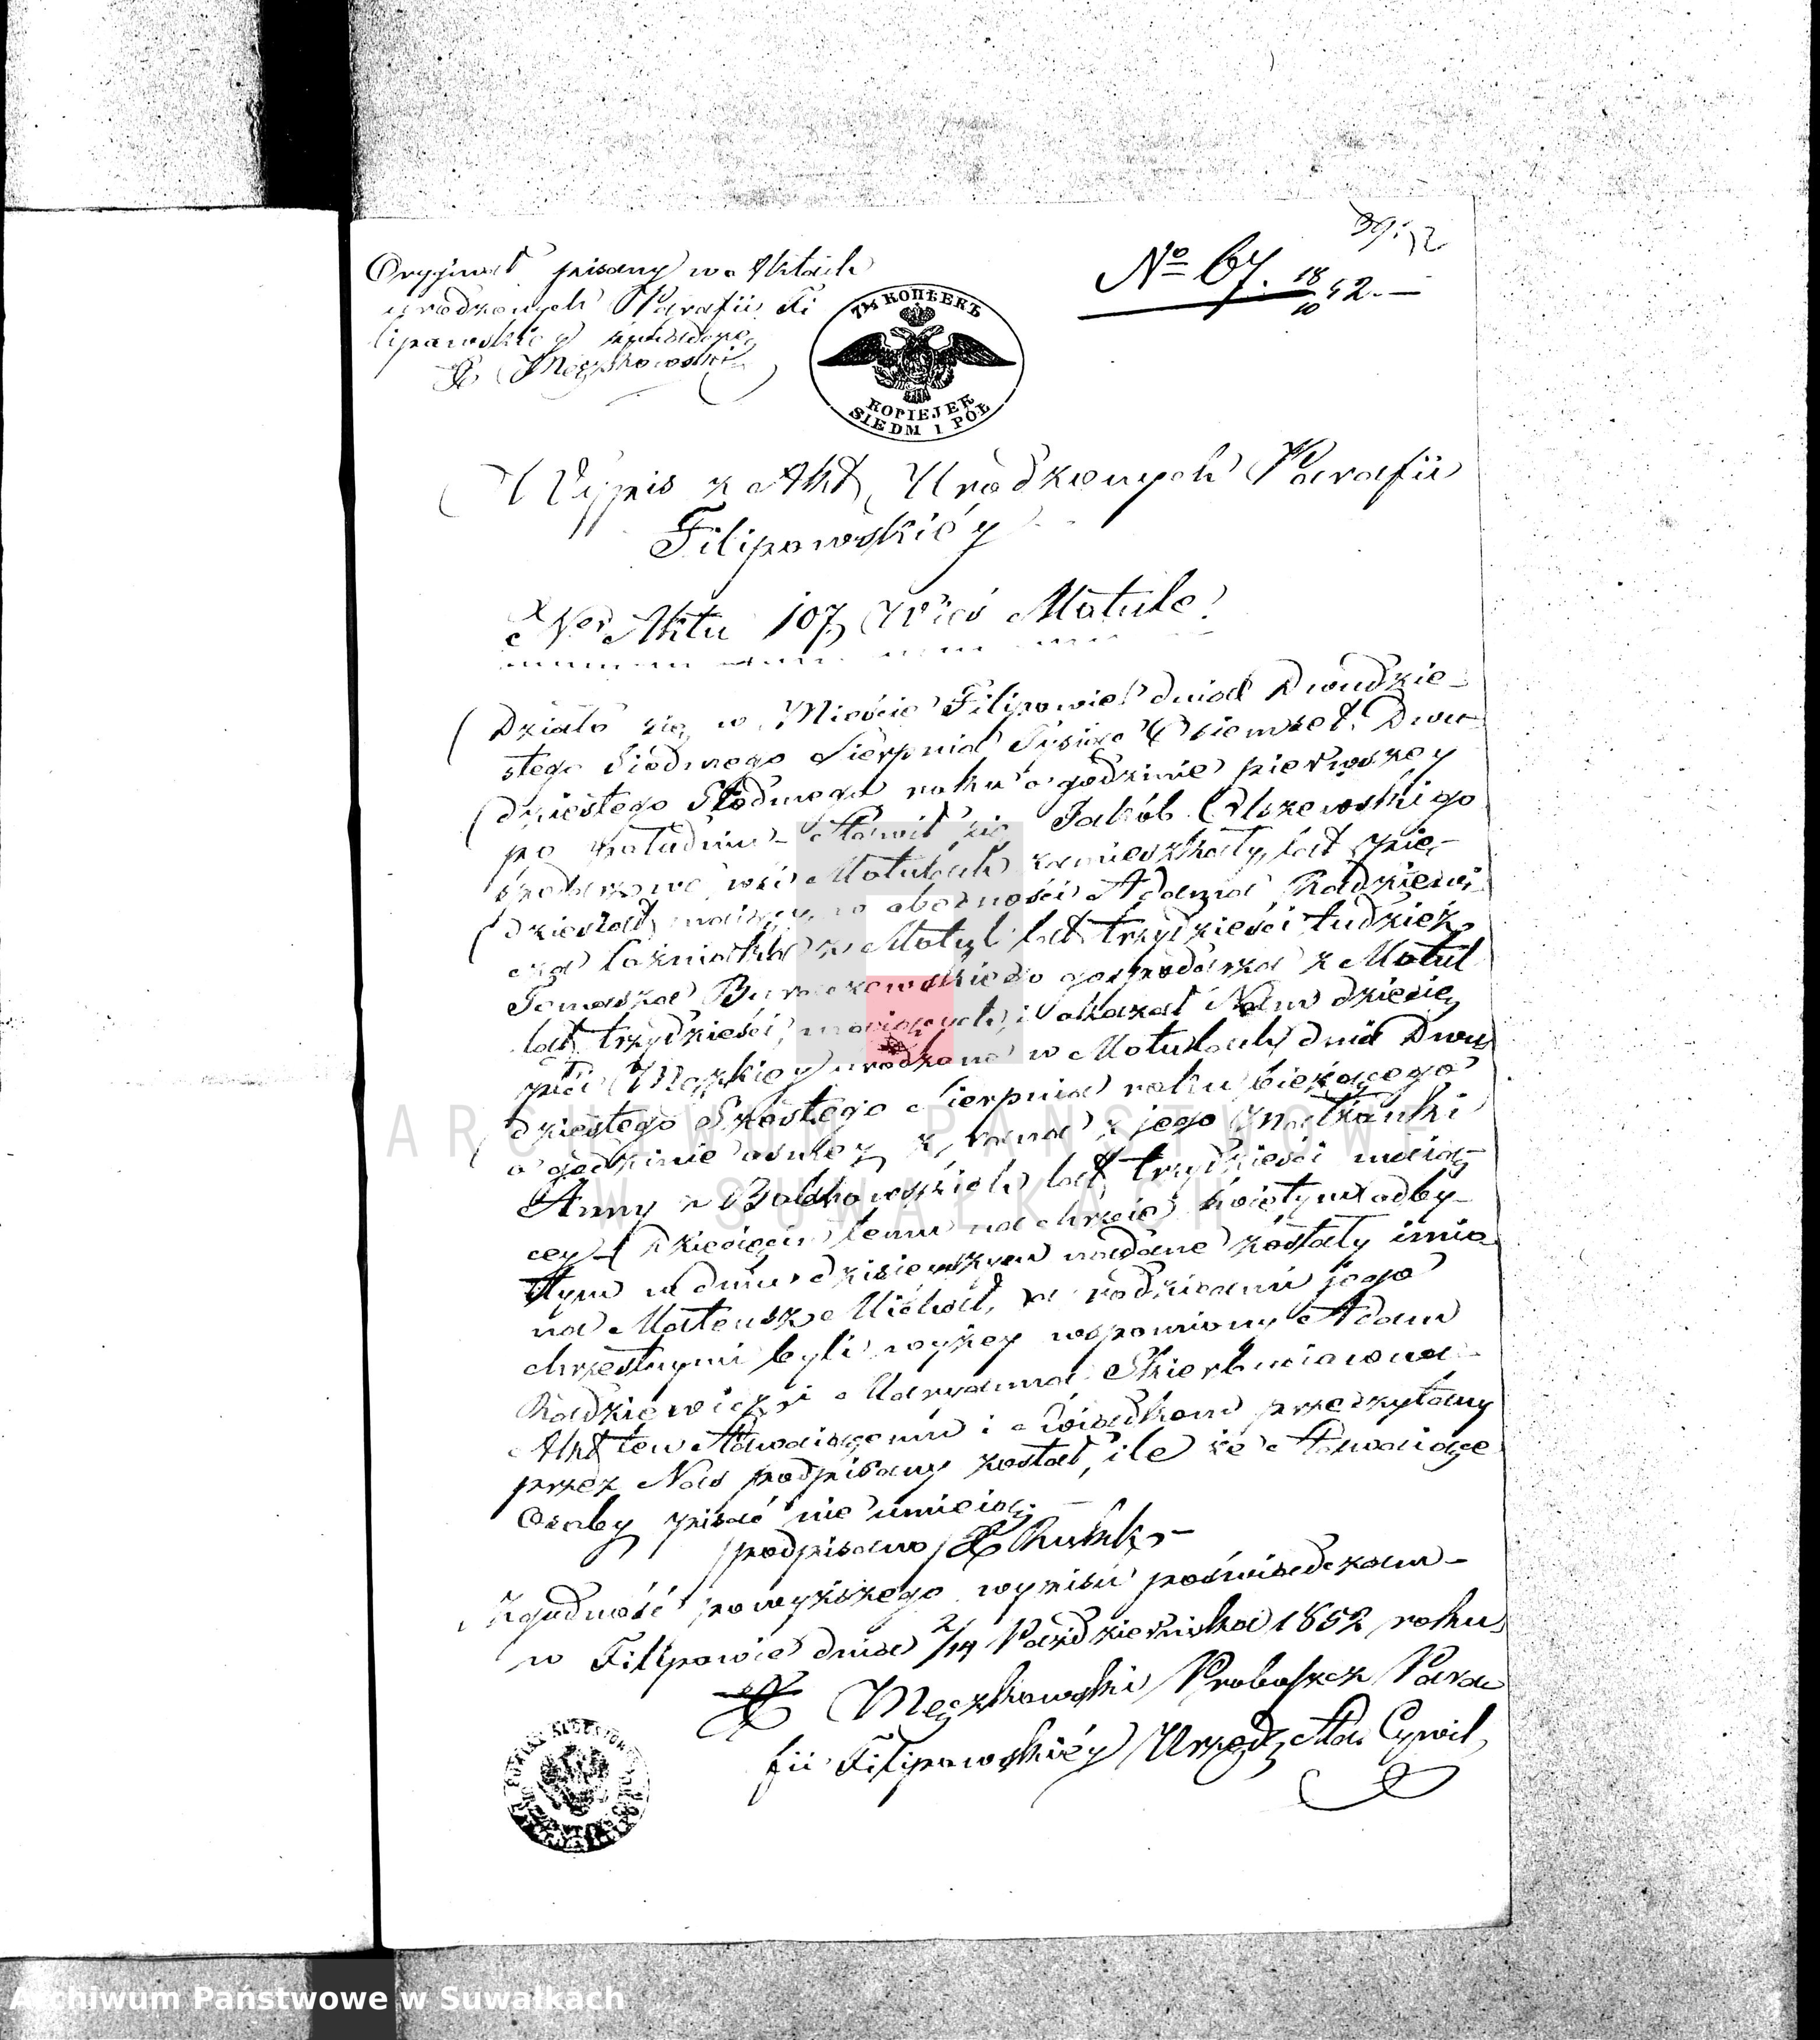 39. 12
No 67. 18/10 52.
Oryginał pisany w Aktach
urodzonych Parafii Fi
lipowskiey
X Męczkowski
7½ КОПѢЕКЪ
KOPIEJEK
SIEDM I PÓŁ
Wypis z Akt Urodzonych Parafii
Filipowskiéy
Ner Aktu 107, Wieś Matule
Działo się w Mieście Filipowie dnia Dwudzie-
stego Siódmego Sierpnia Tysiąc Ośiemset Dwu-
dziestego Siódmego roku o godzinie pierwszey
po południu Stawił się Jakób Olszewski go
spodarz we wsi Matulach zamieszkały, lat pię-
dziesiąt maiący, w obecności Adama Radziewi
cza z Matul lat trzydzieści tudzież
Tomasza gospodarza z Matul
lat trzydzieści, maiących, i okazał Nam dziecię
płci Męzkiey urodzone w Matulach dnia Dwu
dziestego Szostego Sierpnia roku bieżącego
o godzinie osmey z rana z jego małżonki
Anny z lat trzydzieści maią-
cey Dziecięciu temu na chrzcie świętym odby-
tym w dniu dzisieyszym nadane zostały imio
na Mateusz Michał, a rodzicami jego
chrzestnymi byli wyżey wspomniony Adam
Radziewicz i Maryanna
Akt ten Stawaiącemu i Świadkom przeczytany
przez Nas podpisany został, ile że Stawaiące
Osoby pisać nie umieią
podpisano X
Zgodność powyższego wypisu poświadczam
w Filipowie dnia 2/14 Października 1852 roku
X Męczkowski Proboszcz Para
fii Filipowskiéy Urzęd. Sta. Cywil.
ARCHIWUM PAŃSTWOWE
W SUWAŁKACH
Archiwum Państwowe w Suwałkach